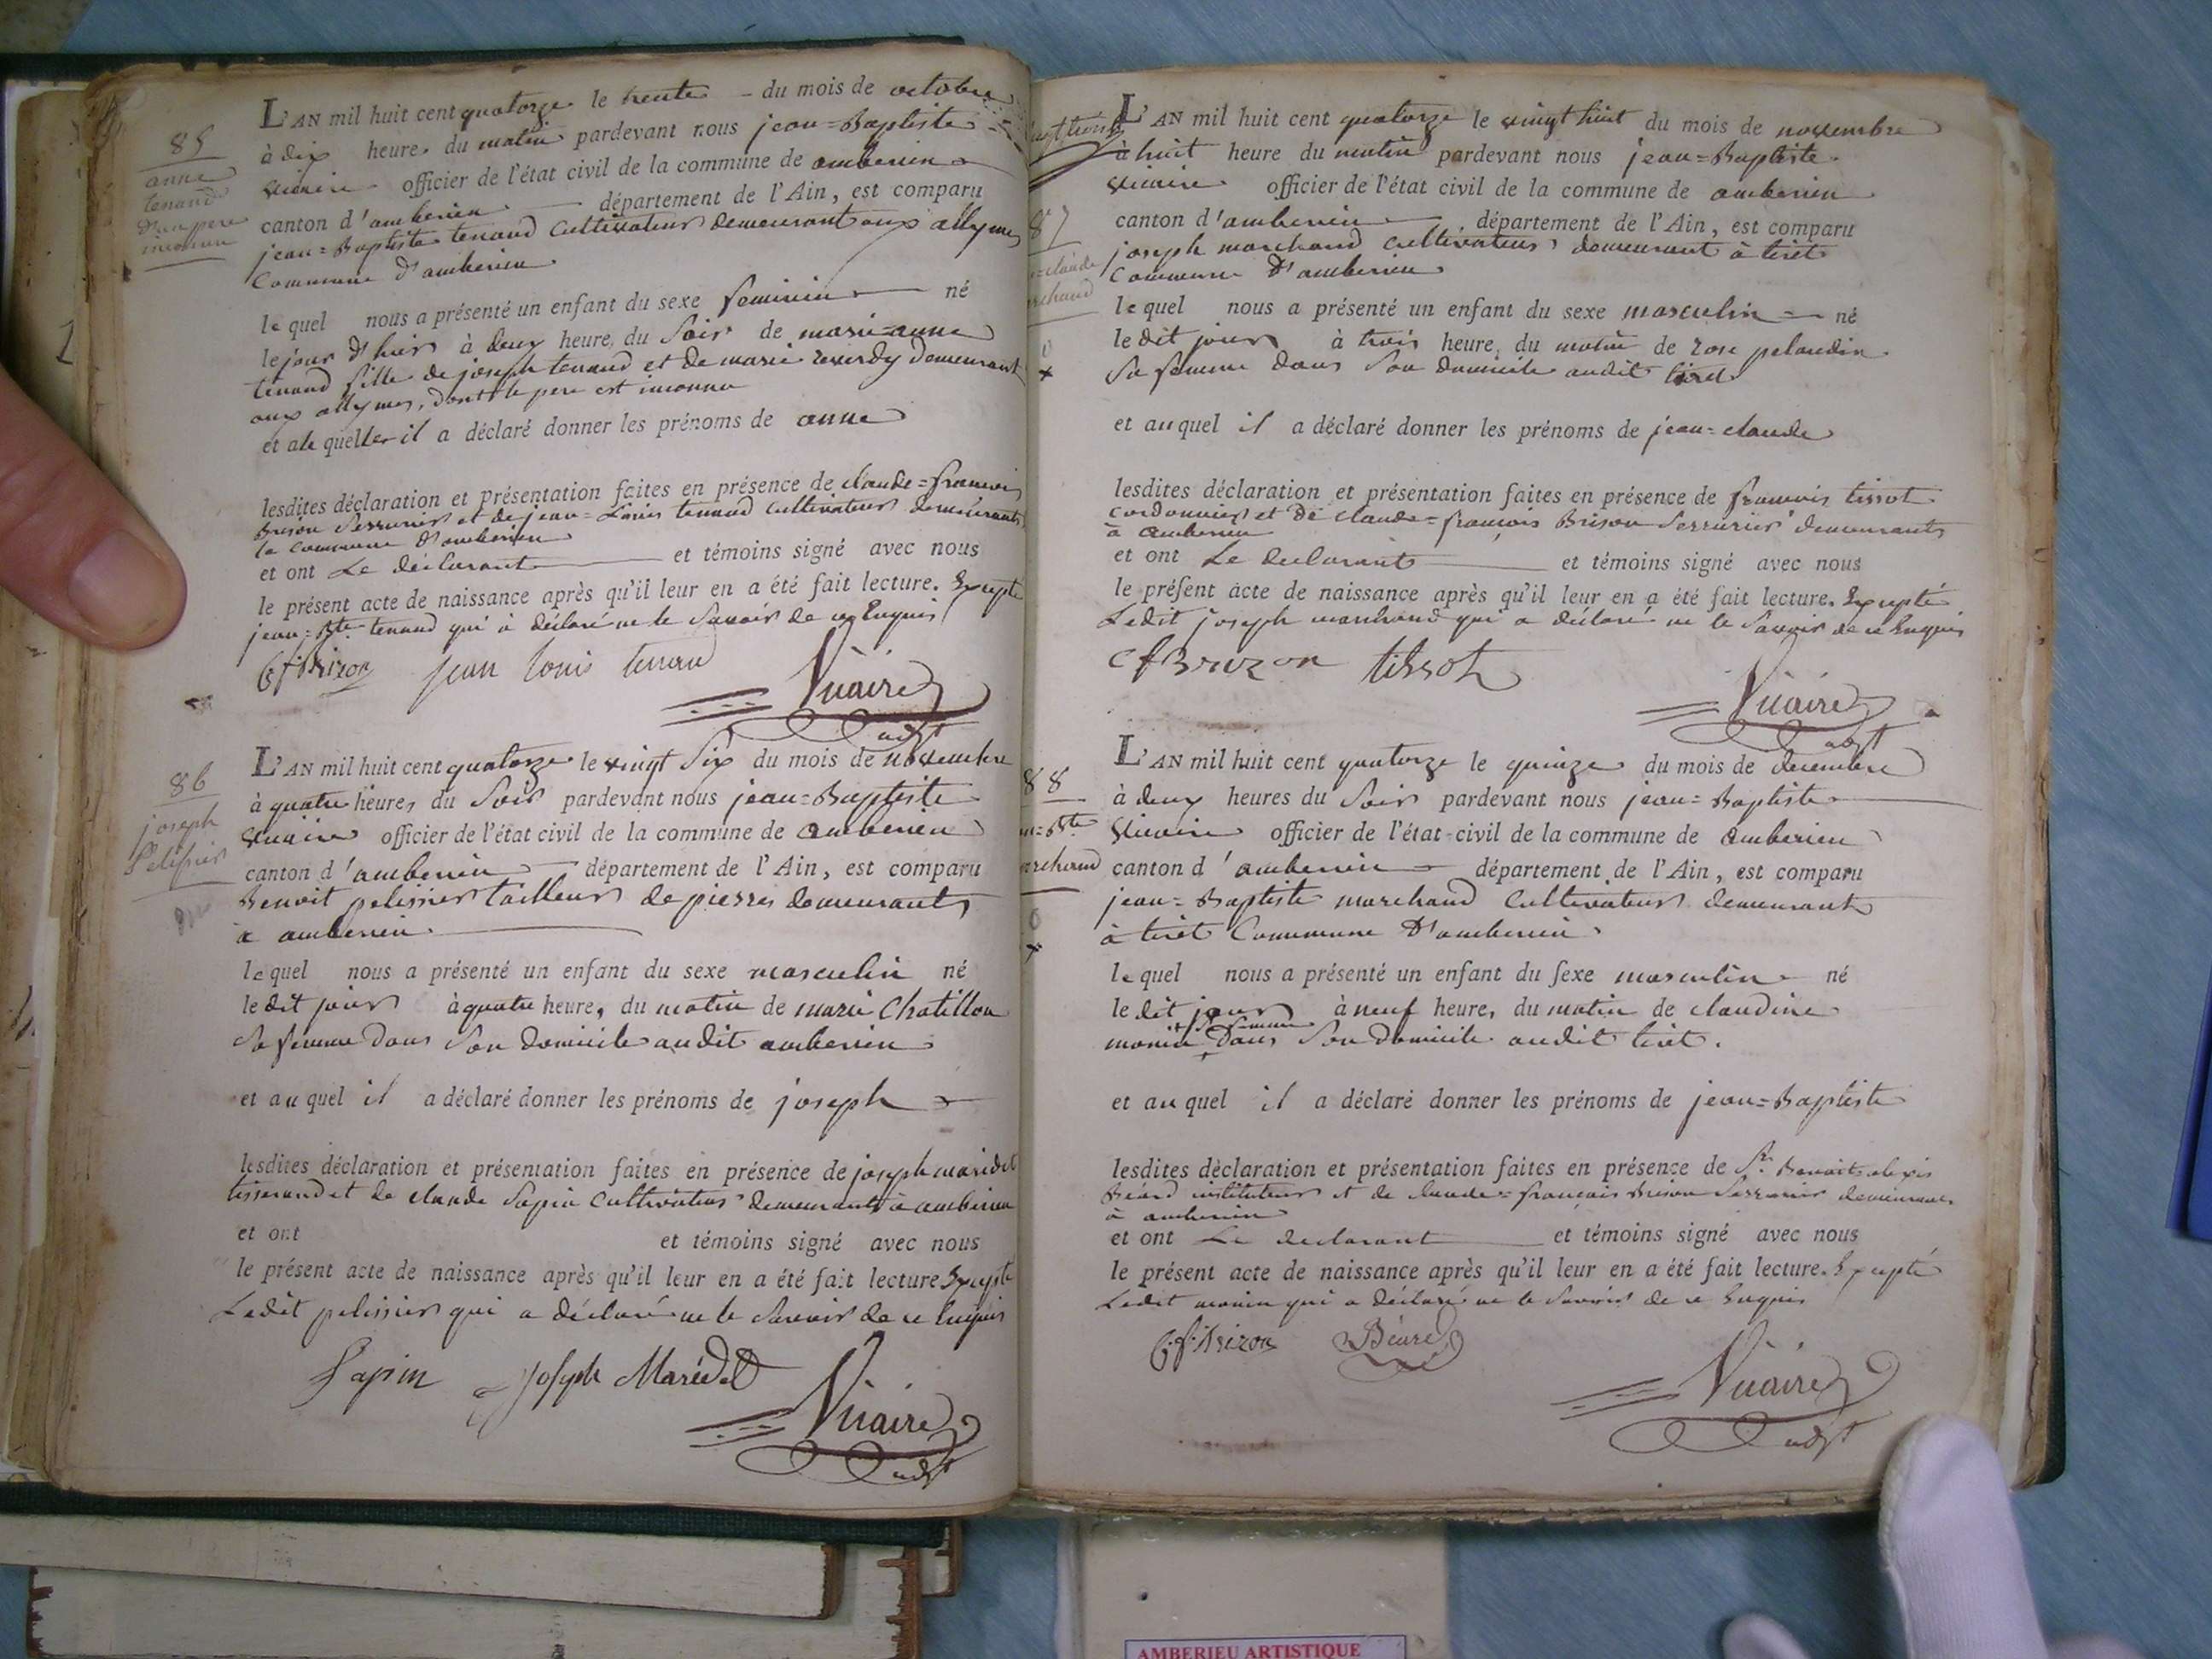 85
anne
tenand
d'un pere
inconnu
L'AN mil huit cent quatorze le trente du mois de octobre
à dix heures du matin pardevant nous jean=Baptiste
Vuaire officier de l'état civil de la commune de amberieu
canton d'amberieu département de l'Ain, est comparu
jean=Baptiste tenand Cultivateur demeurant aux allymes
Commune d'amberieu
lequel nous a présenté un enfant du sexe feminin né
le jour d'hier à deux heures du Soir de marie=anne
tenand fille de joseph tenand et de marie reverdy demeurant
aux allymes, dont le pere est inconnu
et a la quelle il a déclaré donner les prénoms de anne
lesdites déclaration et présentation faites en présence de claude=francois
Brison Serrurier et de jean=Louis tenand cultivateur demeurants
la commune d'amberieu
et ont Le déclarant et témoins signé avec nous
le présent acte de naissance après qu'il leur en a été fait lecture. Excepté
jean=Bte tenand qui a déclaré ne le Savoir de ce Enquis
C f Brizon jean louis tenand
Vuaire
adjt
86
joseph
Pelissier
L'AN mil huit cent quatorze le vingt Six du mois de novembre
à quatre heures du Soir pardevant nous jean=Baptiste
Vuaire officier de l'état civil de la commune de amberieu
canton d'amberieu département de l'Ain, est comparu
Benoit pelissier tailleur de pierres demeurant
à amberieu
lequel nous a présenté un enfant du sexe masculin né
le dit jour à quatre heures du matin de marie Chatillon
Sa femme dans Son domicile audit amberieu
et au quel il a déclaré donner les prénoms de joseph
lesdites déclaration et présentation faites en présence de joseph maridet
tisserand et de claude Sapin Cultivateur demeurants à amberieu
et ont et témoins signé avec nous
le présent acte de naissance après qu'il leur en a été fait lecture Excepté
Ledit pelissier qui a déclaré ne le Savoir de ce Enquis
Sapin joseph Marédet
Vuaire
adjt
87
claude
rchand
L'AN mil huit cent quatorze le vingt huit du mois de novembre
à huit heure du matin pardevant nous jean=Baptiste
Vuaire officier de l'état civil de la commune de amberieu
canton d'amberieu département de l'Ain, est comparu
joseph marchand cultivateur demeurant à tiret
Commune d'amberieu
lequel nous a présenté un enfant du sexe masculin né
le dit jour à trois heures du matin de rose pelaudin
Sa femme dans Son domicile audit tiret
et au quel il a déclaré donner les prénoms de jean=claude
lesdites déclaration et présentation faites en présence de francois tissot
cordonnier et de claude=françois Brison Serrurier demeurants
à amberieu
et ont Le declarant et témoins signé avec nous
le présent acte de naissance après qu'il leur en a été fait lecture. Excepté
Ledit joseph marchand qui a déclaré ne le Savoir de ce Enquis
C f Brizon tissot
Vuaire
adjt
88
n=Bte
archand
L'AN mil huit cent quatorze le quinze du mois de decembre
à deux heures du Soir pardevant nous jean=Baptiste
Vuaire officier de l'état-civil de la commune de amberieu
canton d'amberieu département de l'Ain, est comparu
jean=Baptiste marchand Cultivateur demeurant
à tiret Commune d'amberieu
lequel nous a présenté un enfant du sexe masculin né
le dit jour à neuf heures du matin de claudine
monin Sa femme Dans Son domicile audit tiret.
et au quel il a déclaré donner les prénoms de jean=Baptiste
lesdites déclaration et présentation faites en présence de Sr. Benoit alexis
Béard instituteur et de claude=françois Brison Serrurier demeurants
à amberieu
et ont Le declarant et témoins signé avec nous
le présent acte de naissance après qu'il leur en a été fait lecture. Excepté
Ledit monin qui a déclaré ne le Savoir de ce Enquis
C. f. Brizon Béard
Vuaire
adjt
AMBERIEU ARTISTIQUE